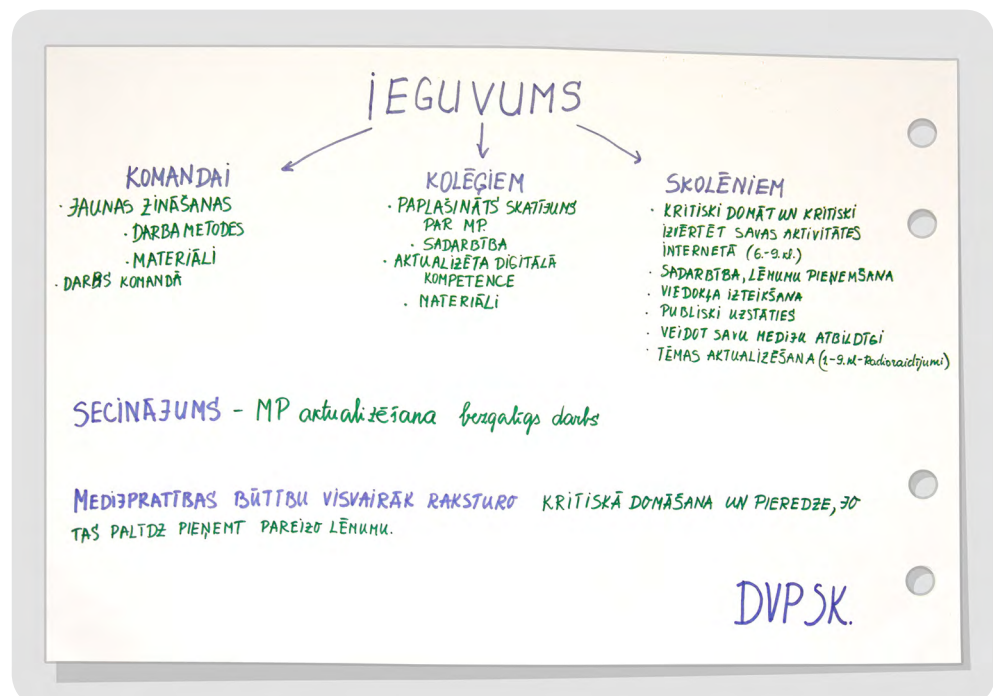 IEGUVUMS
KOMANDAI
· JAUNAS ZINĀŠANAS
· DARBA METODES
· MATERIĀLI
· DARBS KOMANDĀ
KOLĒĢIEM
· PAPLAŠINĀTS SKATĪJUMS
PAR MP.
· SADARBĪBA
· AKTUALIZĒTA DIGITĀLĀ
KOMPETENCE
· MATERIĀLI
SKOLĒNIEM
· KRITISKI DOMĀT UN KRITISKI
IZVĒRTĒT SAVAS AKTIVITĀTES
INTERNETĀ (6.-9.kl.)
· SADARBĪBA, LĒMUMU PIEŅEMŠANA
· VIEDOKĻA IZTEIKŠANA
· PUBLISKI UZSTĀTIES
· VEIDOT SAVU MEDIJU ATBILDĪGI
· TĒMAS AKTUALIZĒŠANA (1-9.kl-Radioraidījumi)
SECINĀJUMS - MP aktualizēšana bezgalīgs darbs
MEDIJPRATĪBAS BŪTĪBU VISVAIRĀK RAKSTURO KRITISKĀ DOMĀŠANA UN PIEREDZE, JO
TAS PALĪDZ PIEŅEMT PAREIZO LĒMUMU.
DVPSK.